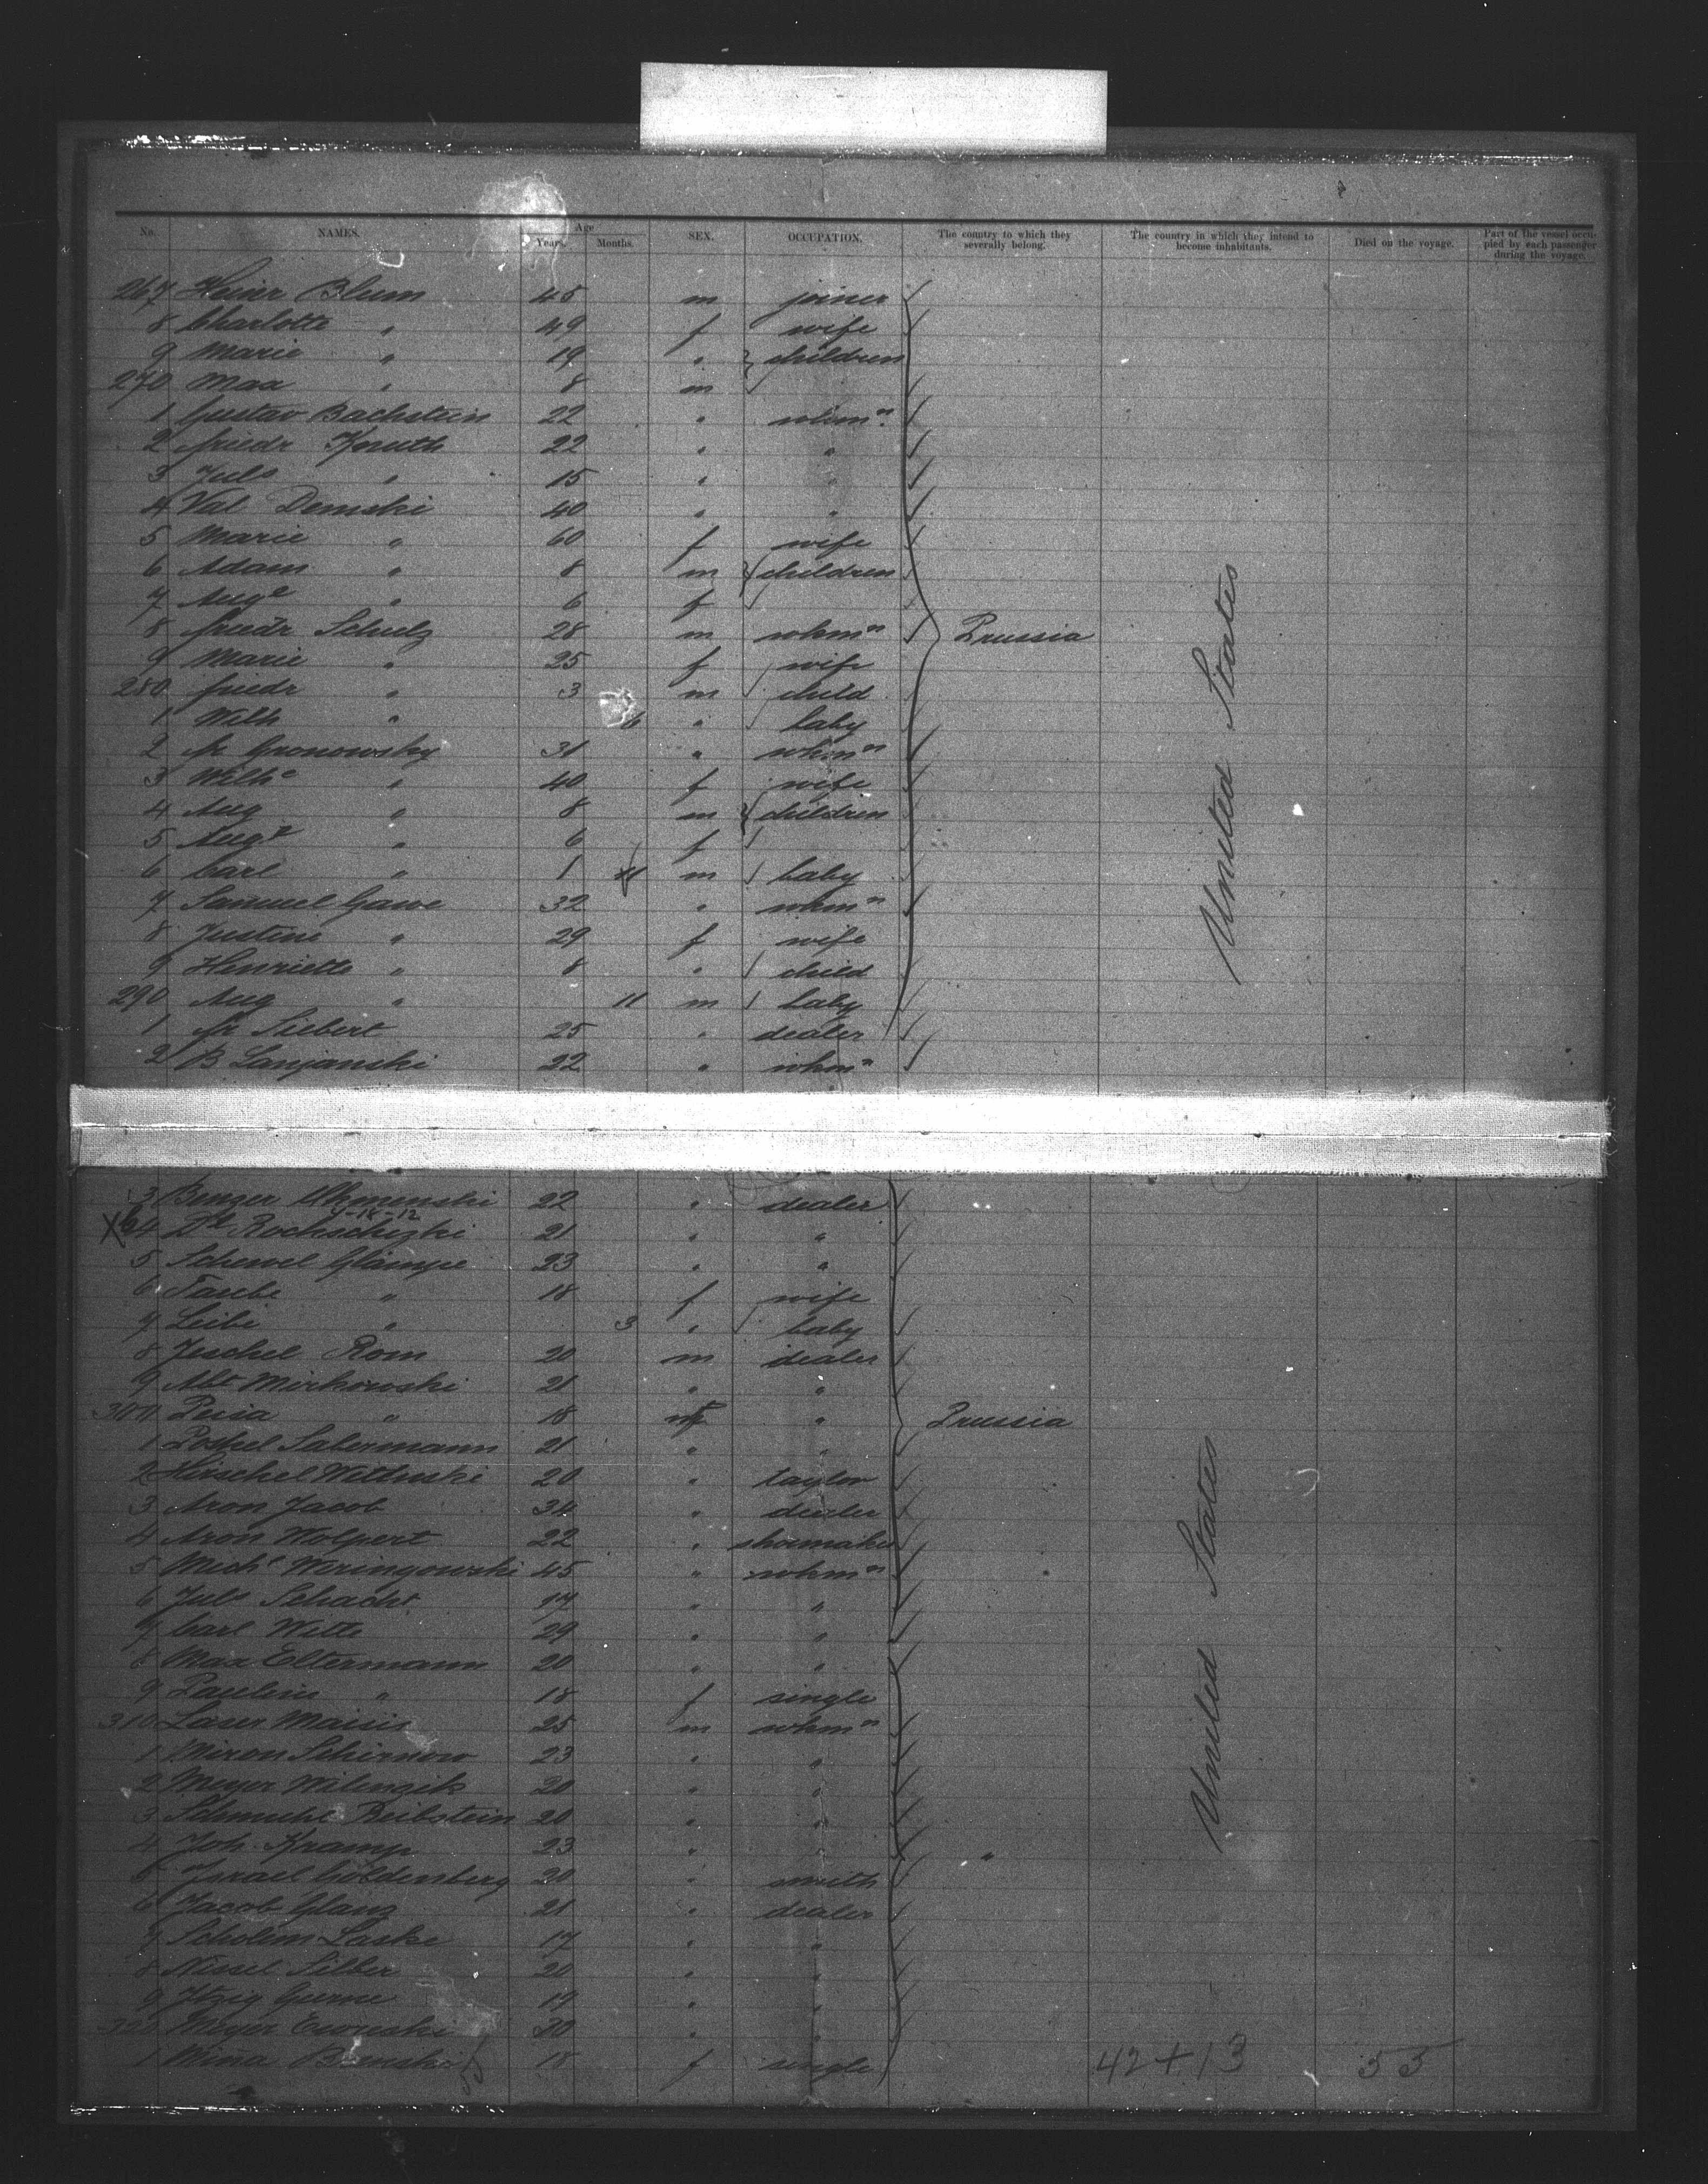 No. NAMES. Age Years. Months. SEX. OCCUPATION. The country to which they severally belong. The country in which they intend to become inhabitants. Died on the voyage. Part of the vessel occupied by each passenger during the voyage.
267 Heinr Blum 45 m joiner
8 Charlotte " 49 f wife
9 Marie " 19 " children
270 Max " 8 m
1 Gustav Bachstein 22 " wkm n
2 Friedr Knuth 22 " "
3 Juls " 15 " "
4 Val Demski 40 " "
5 Marie " 60 f wife
6 Adam " 8 m children
7 Auge " 6 f
8 Friedr Schulz 28 m wkm n Prussia
9 Marie " 25 f wife
280 Friedr " 3 m child
1 Wilh " 6 " baby
2 Fr Gronowsky 31 " wkm n
3 Wilhe " 40 f wife
4 Aug " 8 m children
5 Auge " 6 f
6 Carl " 1 m baby
7 Samuel Gawe 32 " wkm n
8 Justine " 29 f wife
9 Henriette " 8 " child
290 Aug " 11 m baby
1 Fr Siebert 25 " dealer
2 B Lanjanski 22 " wkm n
United States
3 Benzer 22 " dealer
4-14-12
X 4 Rochschizki 21 " "
5 Schewel Glampe 23 " "
6 Taube " 18 f wife
7 Leibe " 3 " baby
8 Jeschel Rom 20 m dealer
9 Abt Mirkowski 21 " "
300 Pesia " 18 f " Prussia
1 Poskel Sabermann 21 " "
2 Hirschel 20 " taylor
3 Aron Jacob 34 " dealer
4 Aron Wolpert 22 " shoemaker
5 Michl Weringowski 45 " wkm n
6 Juls Schacht 17 " "
7 Carl Witte 29 " "
8 Max Eltermann 20 " "
9 Pauline " 18 f single
310 Laser Maisis 25 m wkm n
1 Miron Schirnow 23 " "
2 Meyer Wilenzik 20 " "
3 Schmuhl Reibstein 20 " "
4 Joh. Kramp 23 " " "
5 Israel Goldenberg 20 " smith
6 Jacob Glanz 21 " dealer
7 Scholem Laske 17 " "
8 Nissel Silber 20 " "
9 Itzig 19 " "
320 Meyer 20 " "
1 Mina 18 f single
United States
42+13 55
55